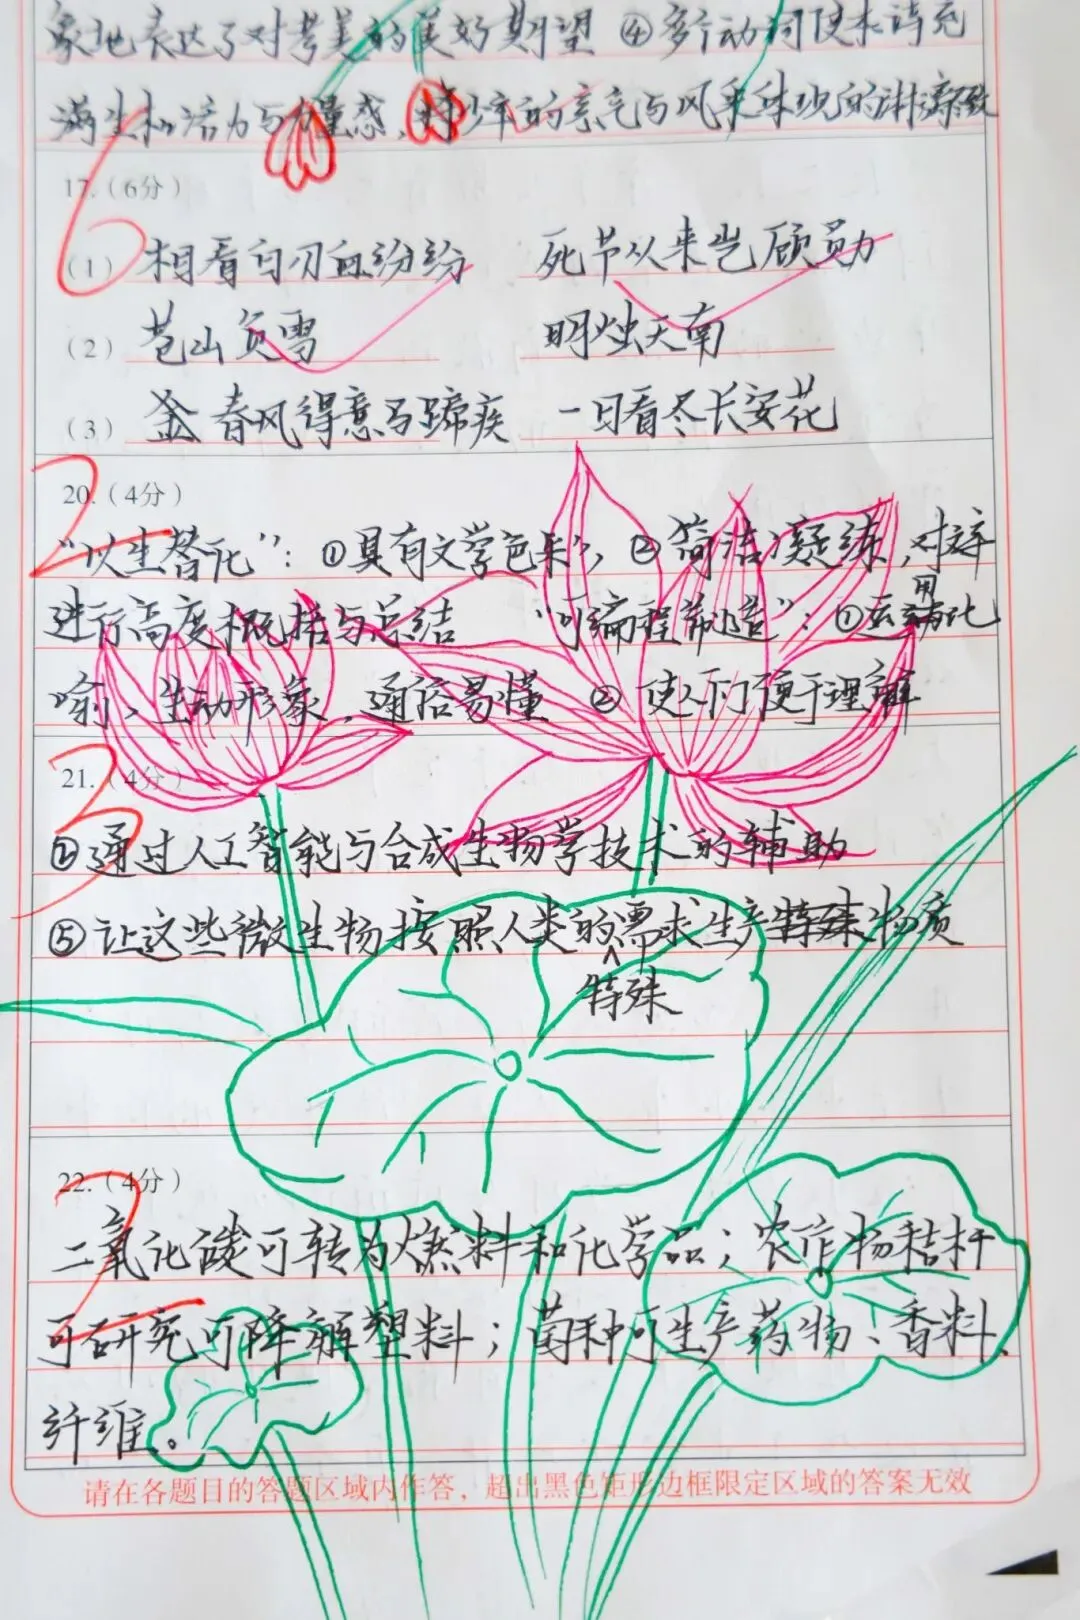 象地表达了对考美的美好期望 ④多个动词使本诗充
满生机活力与力量感，将少年的豪气与风采体现的淋漓尽致
17.（6分）
6
（1）相看白刃血纷纷 死节从来岂顾勋
（2）苍山负雪 明烛天南
（3）春风得意马蹄疾 一日看尽长安花
2
20.（4分）
“以生替化”：①具有文学色彩，②简洁凝练，对
进行高度概括与总结 “可编程制造”：①运用比
喻，生动形象，通俗易懂 ② 使人们便于理解
3
21.（4分）
②通过人工智能与合成生物学技术的辅助
⑤让这些微生物按照人类的需求生产特殊物质
特殊
2
22.（4分）
二氧化碳可转为燃料和化学品；农作物秸秆
可研究可降解塑料；菌种可生产药物、香料、
纤维。
请在各题目的答题区域内作答，超出黑色矩形边框限定区域的答案无效